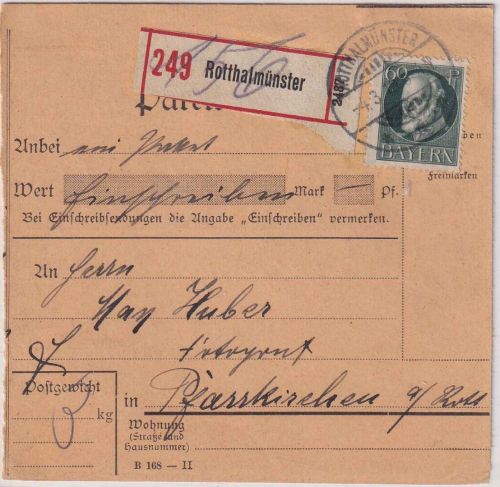 249 Rotthalmünster
156
ROTTHALMÜNSTER
60 P
BAYERN
Anbei ein Paket
Freimarken
Wert Einschreiben Mark — Pf.
Bei Einschreibsendungen die Angabe „Einschreiben" vermerken.
An Herrn
Max Huber
Postgewicht
kg
in Pfarrkirchen a/Rott
Wohnung
(Straße und
Hausnummer)
B 168 — II